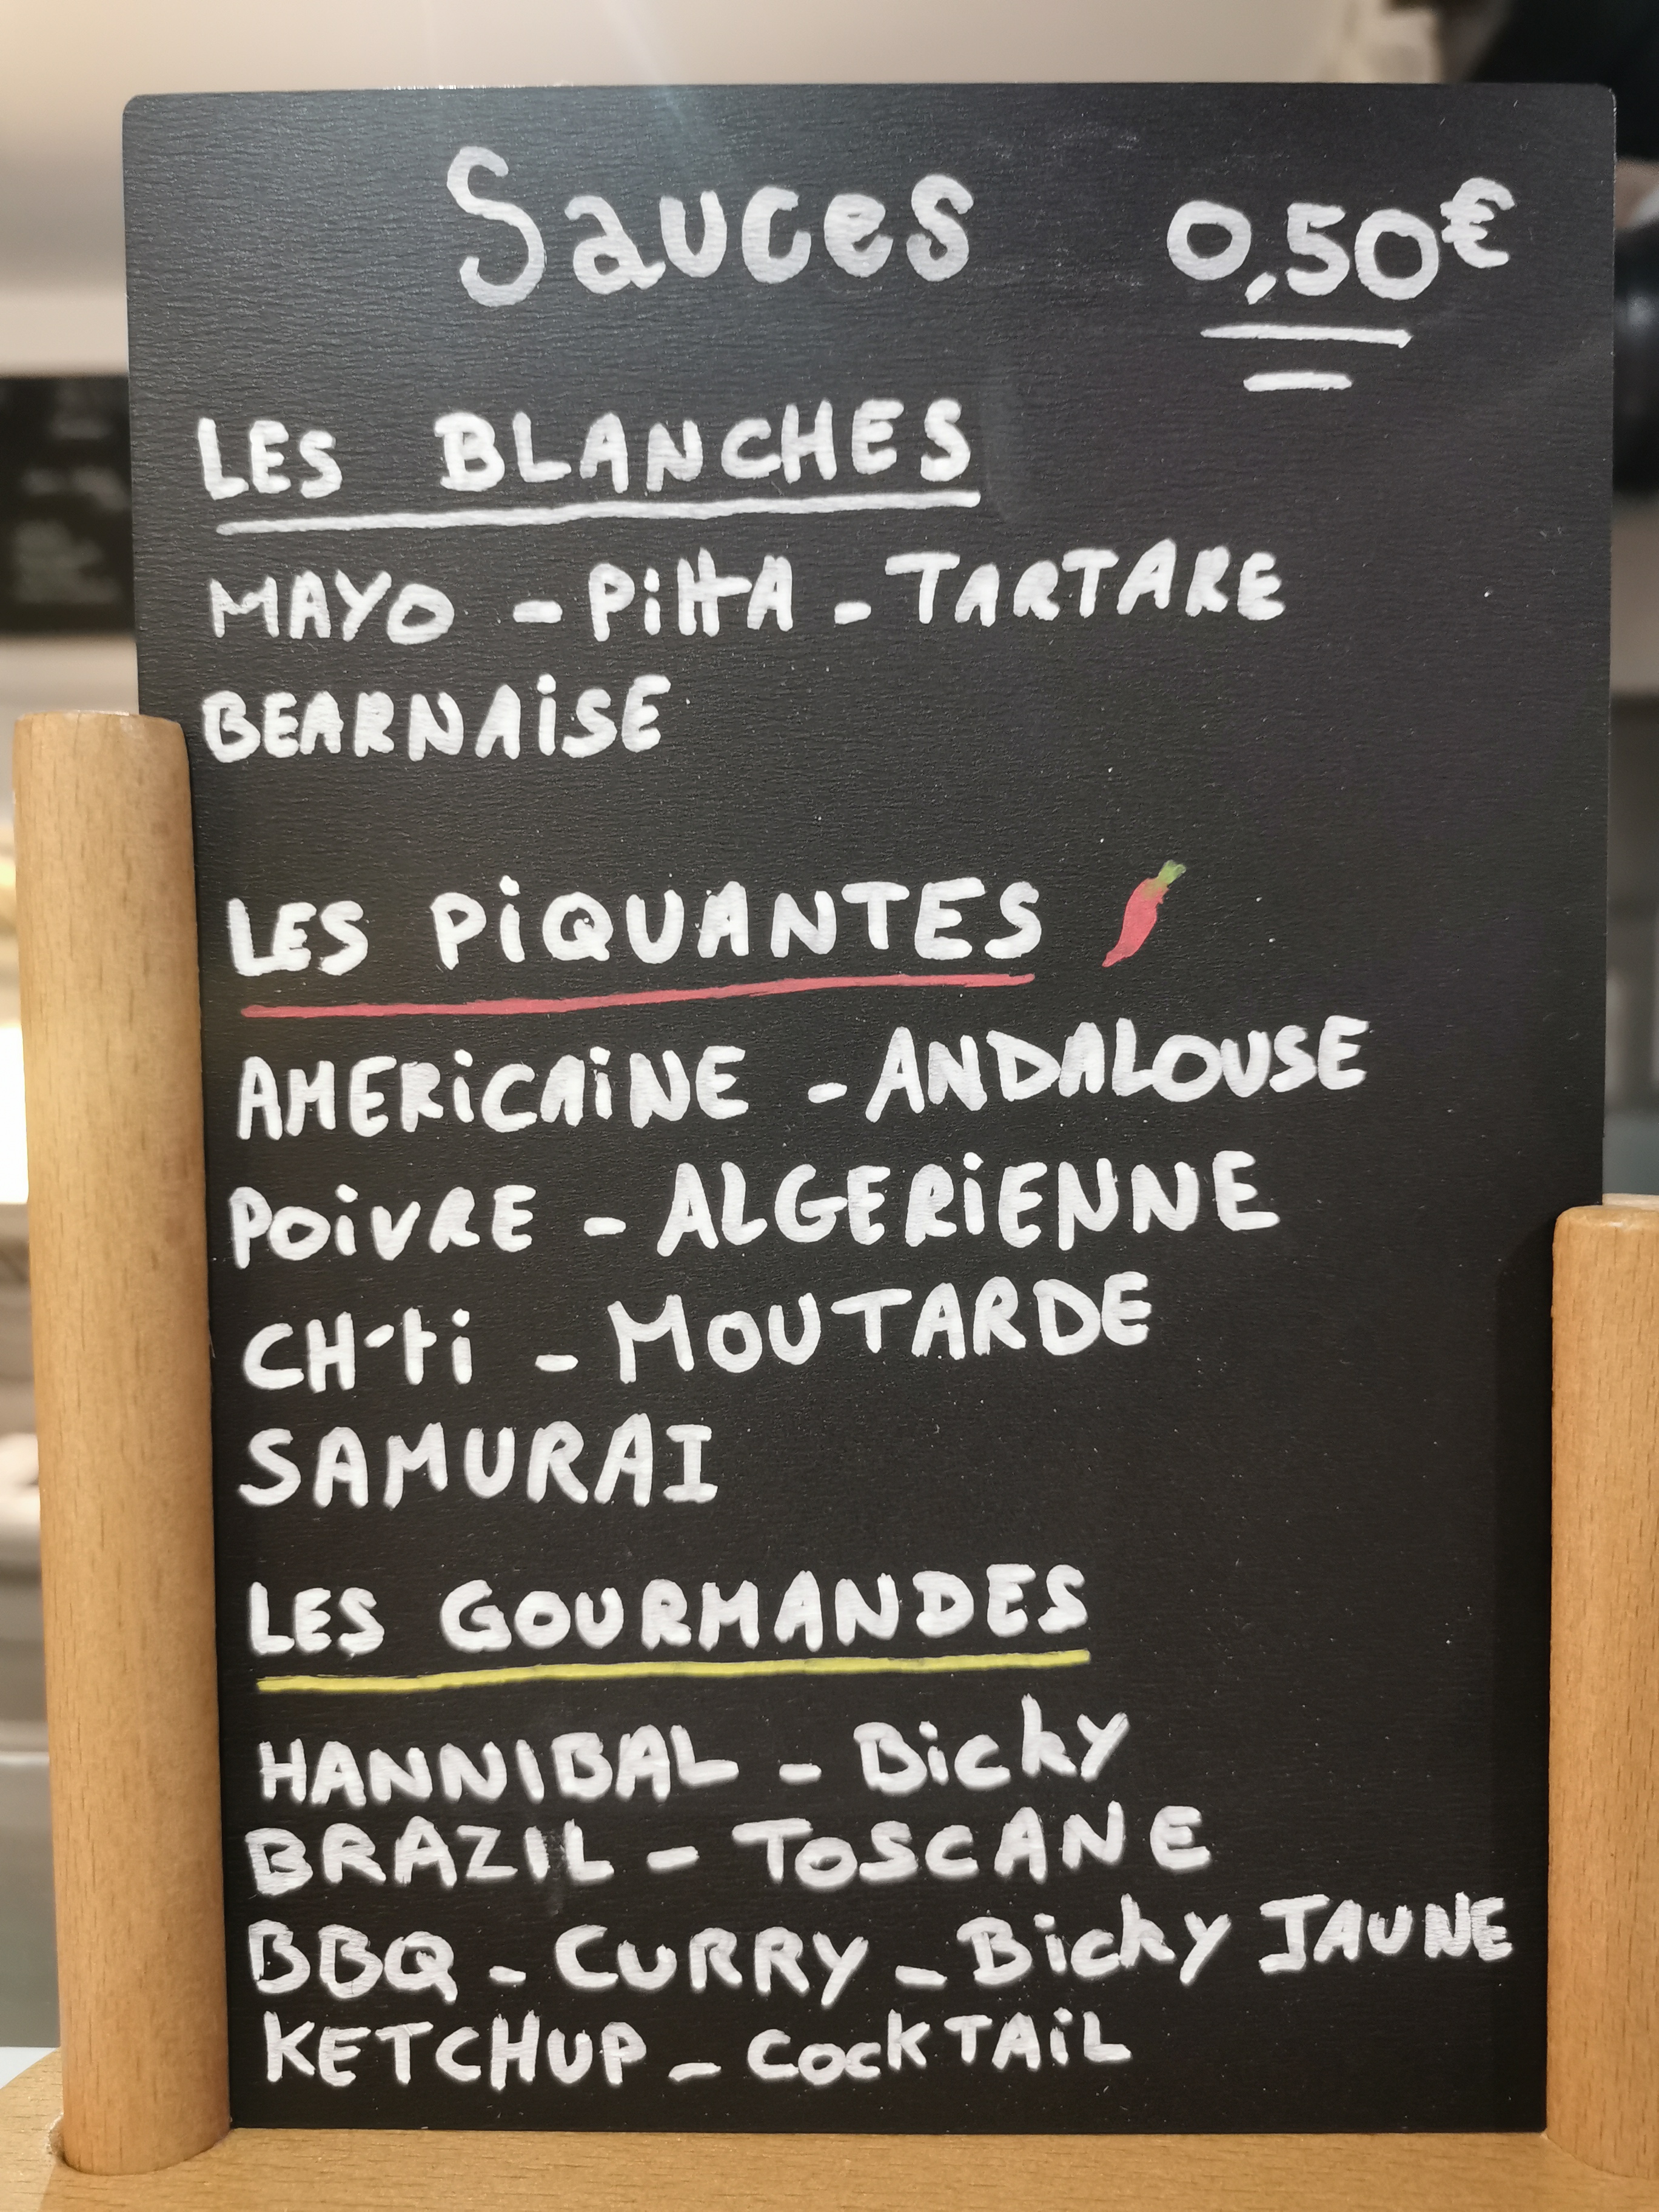 Sauces 0,50€
LES BLANCHES
MAYO - PittA - TARTARE
BEARNAiSE
LES PiQUANTES
AMERiCAiNE - ANDALOUSE
POiVRE - ALGERiENNE
CH'ti - MOUTARDE
SAMURAI
LES GOURMANDES
HANNIBAL - Bicky
BRAZIL - TOSCANE
BBQ - CURRY - Bicky JAUNE
KETCHUP - COCKTAiL